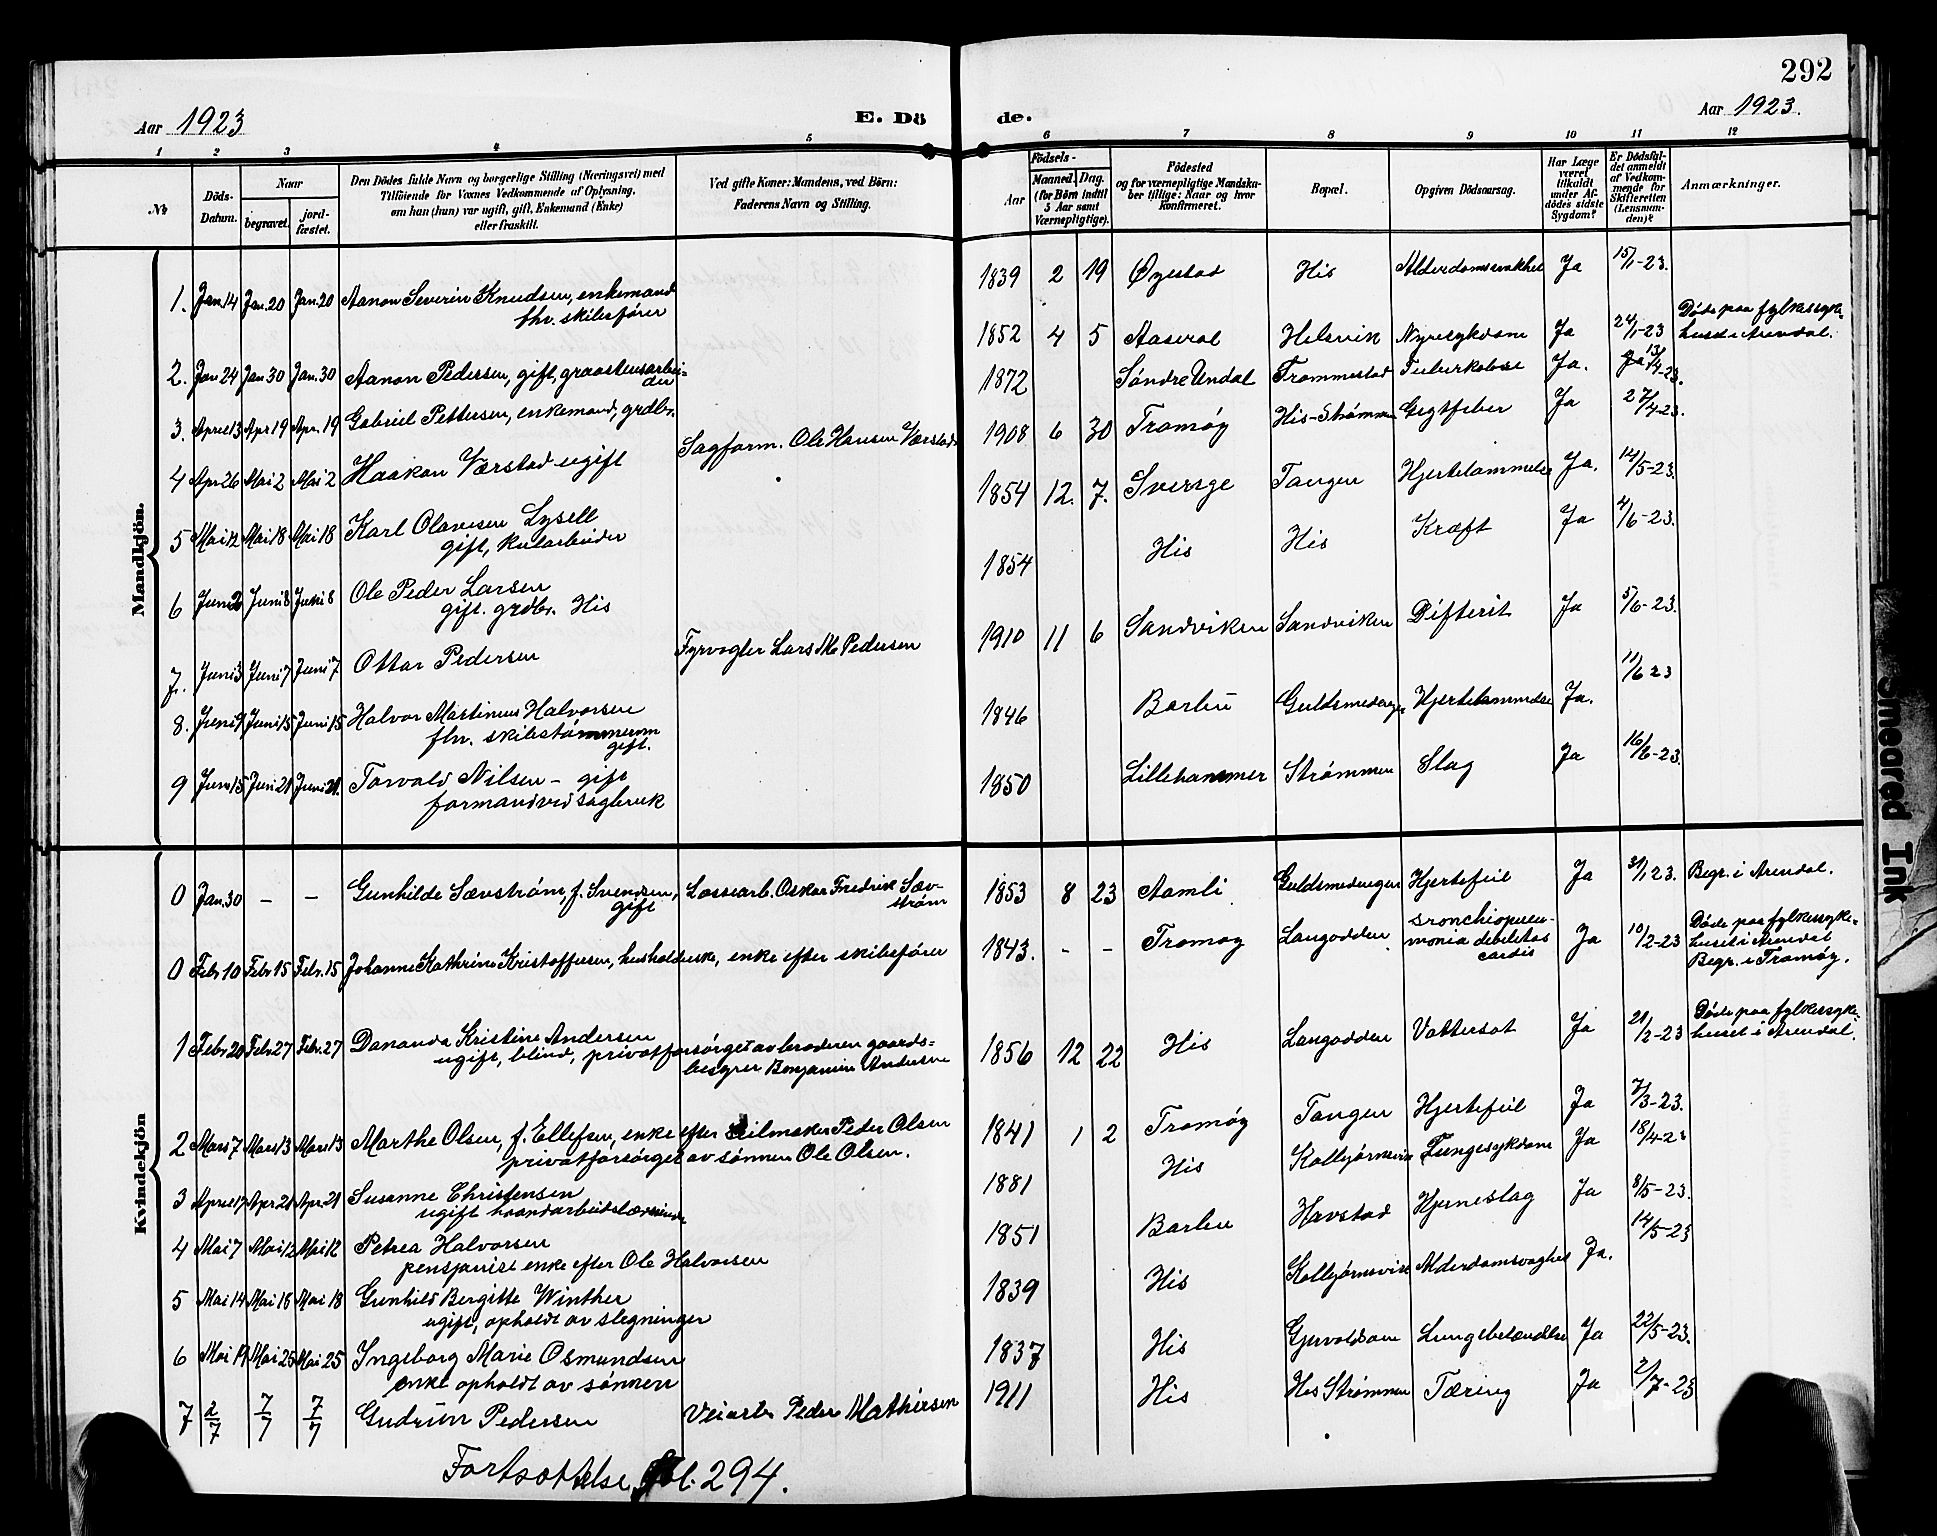 292
Aar 1923
E. Dö
de.
Aar 1923.
1 2 3 4 5 6 7 8 9 10 11 12
No
Döds-
Datum.
Naar
begravet.
jord-
fæstet.
Den Dödes fulde Navn og borgerlige Stilling (Næringsvei) med
Tilföiende for Voxnes Vedkommende af Oplysning,
om han (hun) var ugift, gift, Enkemand (Enke)
eller fraskilt.
Ved gifte Koner: Mandens, ved Börn:
Faderens Navn og Stilling.
Födsels-
Aar
Maaned. Dag.
(for Börn indtil
5 Aar samt
Værnepligtige).
Födested
og for værnepligtige Mandska-
ber tillige: Naar og hvor
konfirmeret.
Bopæl.
Opgiven Dödsaarsag.
Har Læge
været
tilkaldt
under Af-
dödes sidste
Sygdom?
Er Dödsfal-
det anmeldt
af Vedkom-
mende for
Skifteretten
(Lensman-
den)?
Anmærkninger.
Mandkjön.
1. Jan. 14 Jan. 20 Jan. 20 Aanon Severin Knudsen, enkemand
fhv. skibsfører
1839 2 19 Øyestad His Alderdomssvakhet Ja 15/1-23.
2. Jan 24 Jan 30 Jan. 30 Aanon Pedersen, gift, graastensarbei-
der
1852 4 5 Aaseral Helsvik Nyresykdom Ja 24/1-23 Døde paa fylkessyke-
huset i Arendal.
3. April 13 Apr 19 Apr. 19 Gabriel Pettersen, enkemand, grdbr.
1872 Søndre Undal Trommestad Tuberkulose Ja. 13/4-23.
4 Apr 26 Mai 2 Mai 2 Haakon Værstad ugift Sagform. Ole Hansen Værstad
1908 6 30 Tromøy His-Strømmen Gigtfeber Ja 27/4-23.
5 Mai 12 Mai 18 Mai 18 Karl Olavesen Lysell
gift, kularbeider
1854 12. 7. Sverige Tangen Hjertelammelse Ja. 14/5-23.
6 Juni 2 Juni 8 Juni 8 Ole Peder Larsen
gift. grdbr. His
1854 His His Kræft Ja 4/6-23.
7. Juni 3 Juni 7 Juni 7 Ottar Pedersen Fyrvogter Lars M. Pedersen
1910 11 6 Sandviken Sandviken Difterit Ja 5/6-23.
8. Juni 9 Juni 15 Juni 15 Halvor Martinius Halvorsen
fhv. skibstømmerm
gift.
1846 Barbu Guldsmedengen Hjertelammelse Ja. 11/6 23
9 Juni 15 Juni 21 Juni 21. Torvald Nilsen - gift
formand ved sagbruk
1850 Lillehammer Strømmen Slag Ja 16/6-23.
Kvindekjön
0 Jan. 30 - - Gunhilde Sævstrøm, f. Svendsen,
gift
Lossearb. Oskar Fredrik Sæv-
strøm
1853 8 23 Aamli Guldsmedengen Hjertefeil Ja 31/1 23. Begr. i Arendal.
0 Febr 10 Febr 15 Febr. 15 Johanne Kathrine Kristoffersen, husholderske, enke efter skibsfører
1843. - - Tromøy Langodden Bronchiopneu-
monia debilitas
cordis
Ja 10/2-23 Døde paa fylkessyke-
huset i Arendal
Begr. i Tromøy.
1 Febr 20 Febr. 27 Febr. 27 Dananda Kristine Andersen
ugift, blind, privatforsørget av broderen gaards-
besyrer Benjamin Andersen
1856 12 22 His Langodden Vattersot Ja 21/2-23 Døde paa fylkessyke-
huset i Arendal.
2 Mars 7 Mars 13 Mars 13 Marthe Olsen, f. Ellefsen, enke efter seilmaker Peder Olsen
privatforsørget av sønnen Ole Olsen.
1841 1 2 Tromøy Tangen Hjertefeil Ja 7/3-23.
3 April 17 Apr 21 Apr. 21 Susanne Christensen
ugift haandarbeidslærerinde
1881 His Kolbjørnsvik Lungesykdom Ja 18/4-23
4 Mai 7 Mai 12 Mai 12 Petrea Halvorsen
pensjonist enke efter Ole Halvorsen
1851 Barbu Havstad Hjerneslag Ja 8/5-23.
5 Mai 14 Mai 18 Mai 18 Gunhild Bergitte Winther
ugift, opholdt av slegninger
1839 His Kolbjørnsvik Alderdomsvaghet Ja. 14/5-23
6 Mai 19 Mai 25 Mai 25 Ingeborg Marie Osmundsen
enke opholdt av sønnen
1837 His Gjervoldsøen Lungebetændelse Ja 22/5-23.
7 2/7 7/7 7/7 Gudrun Pedersen Veiarb. Peder Mathisen
1911 His His Strømmen Tæring Ja 2/7-23
Fortsættelse fol. 294.
Smeared Ink